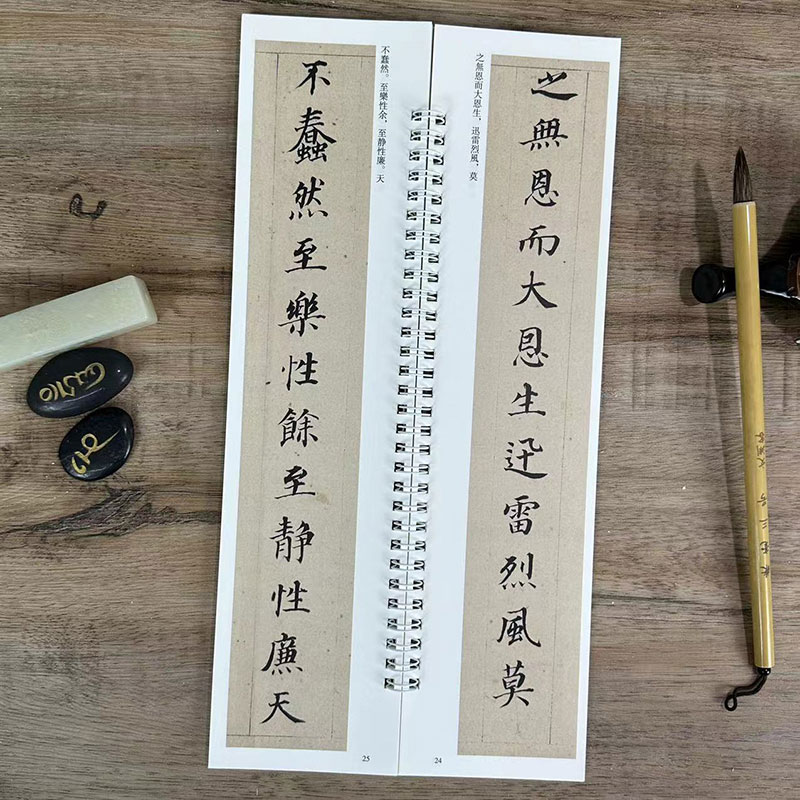 之無恩而大恩生迅雷烈風莫
之無恩而大恩生，迅雷烈風，莫
24
不蠢然至樂性餘至静性廉天
不蠢然。至樂性余，至静性廉。天
25